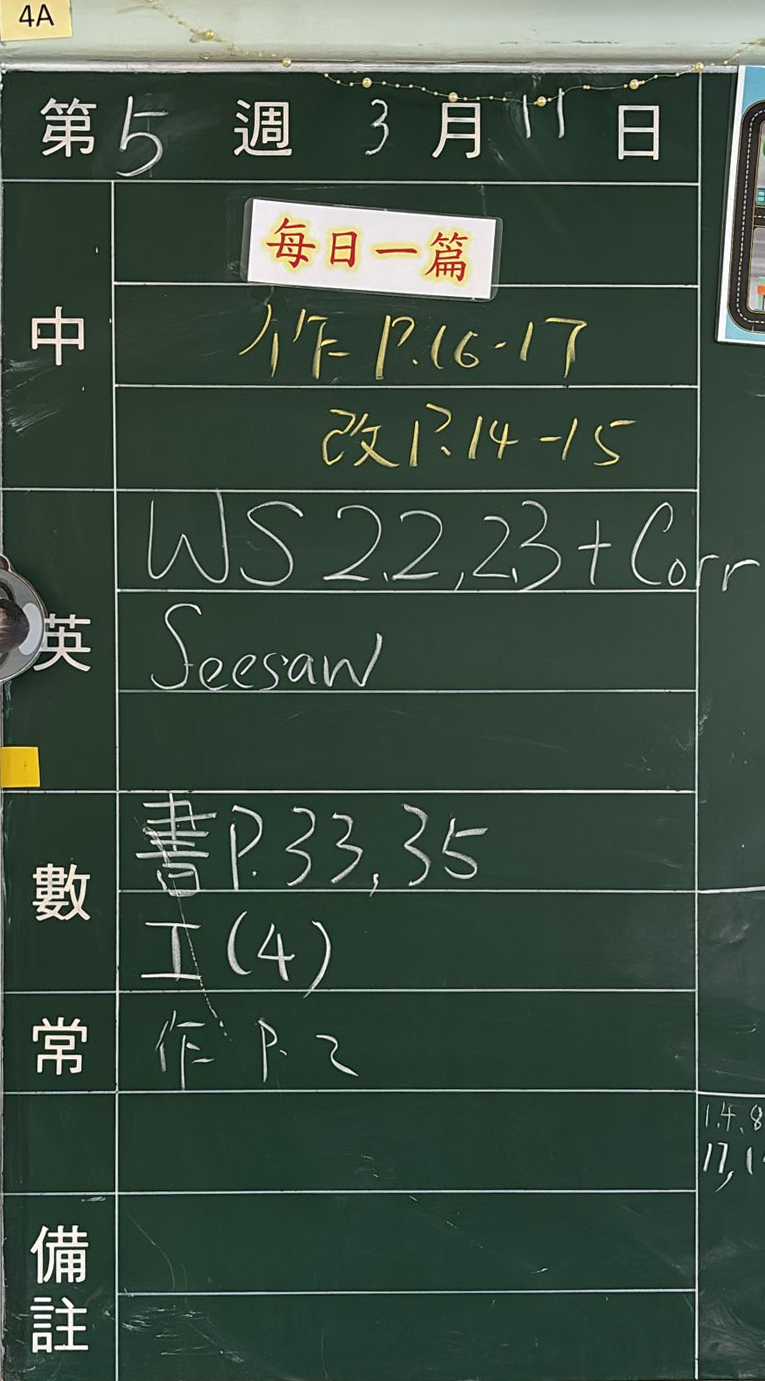 4A
第5週 3月11日
中
每日一篇
作 P.16-17
改 P.14-15
英
WS 2.2, 2.3 + Corr
Seesaw
數
書 P.33, 35
工(4)
常
作 P.2
備註
1.4.8